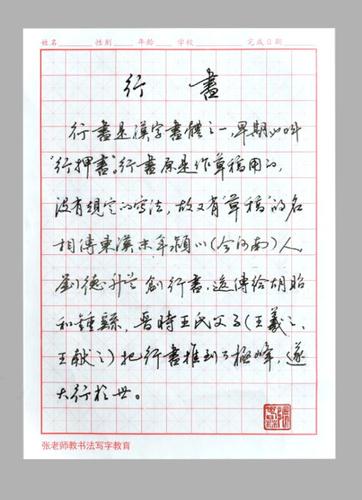 姓名 性别 年龄 学校 完成日期
行書
行書是漢字書體之一,早期的叫
"行押書"。行書原是作草稿用的,
没有規定的寫法,故又有"草稿"的名
相傳東漢末年,潁川(今河南)人,
劉德升創行書,傳给胡昭
和鍾繇,晋時王氏父子(王羲之、
王献之)把行書推到了極峰,遂
大行於世。
张老师教书法写字教育